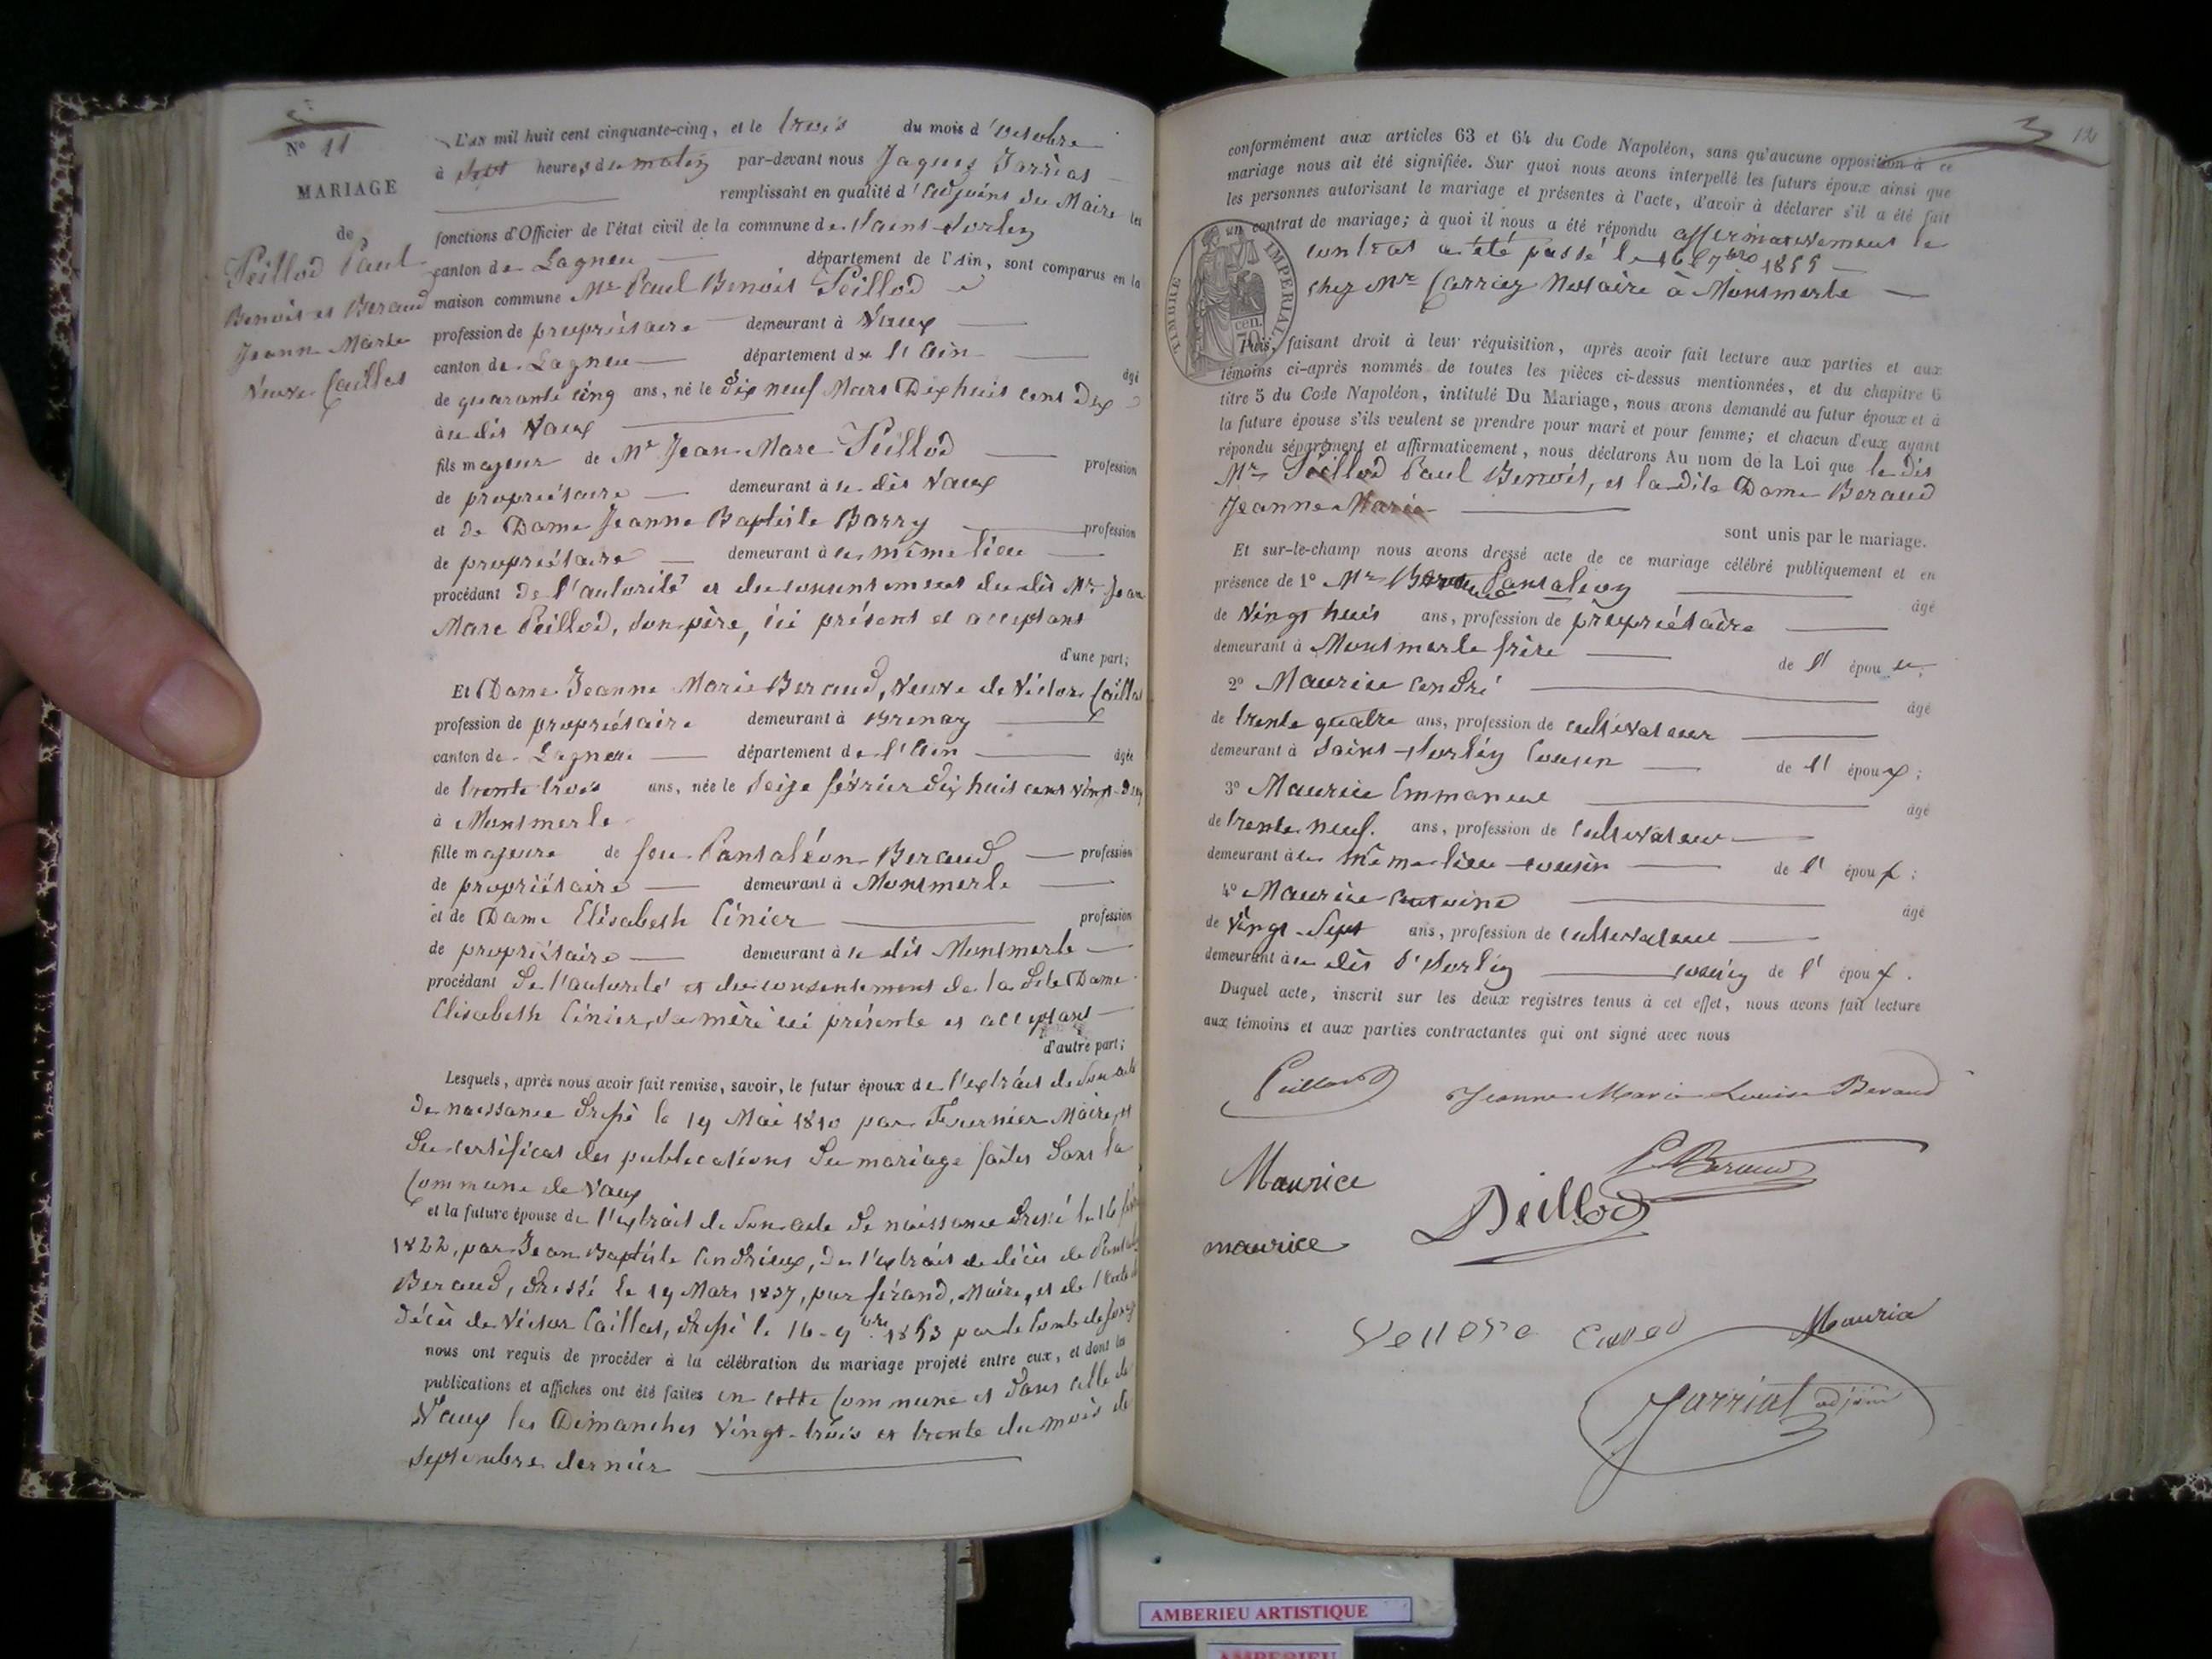 N° 11
MARIAGE
de
Peillod Paul
Benoit et Beraud
Jeanne Marie
Veuve Caillat
L'an mil huit cent cinquante-cinq, et le trois du mois d'octobre
à sept heures du matin par-devant nous Jaques Jarriat
remplissant en qualité d'adjoint du Maire les
fonctions d'Officier de l'état civil de la commune de Saint-Sorlin
canton de Lagneu département de l'Ain, sont comparus en la
maison commune Mr Paul Benoit Peillod
profession de propriétaire demeurant à Vaux
canton de Lagneu département de l'Ain âgé
de quarante cinq ans, né le dix neuf Mars Dix huit cent dix
à ce dit Vaux
fils majeur de Mr Jean Marc Peillod profession
de propriétaire demeurant à ce dit Vaux
et de Dame Jeanne Baptiste Barry profession
de propriétaire demeurant à ce même lieu
procédant de l'autorité et du consentement du dit Mr Jean
Marc Peillod, son père, ici présent et acceptant
d'une part;
Et Dame Jeanne Marie Beraud, veuve de Victor Caillat
profession de propriétaire demeurant à
canton de Lagneu département de l'Ain âgée
de trente trois ans, née le seize février dix huit cent vingt-deux
à Montmerle
fille majeure de feu Pantaléon Beraud profession
de propriétaire demeurant à Montmerle
et de Dame Elisabeth Cinier profession
de propriétaire demeurant à ce dit Montmerle
procédant de l'autorité et du consentement de la dite Dame
Elisabeth Cinier, sa mère ici présente et acceptant
d'autre part;
Lesquels, après nous avoir fait remise, savoir, le futur époux de l'extrait de son acte
de naissance dressé le 19 Mai 1810 par Fournier Maire, et
du certificat des publications du mariage faites dans la
Commune de Vaux
et la future épouse de l'extrait de son acte de naissance dressé le 16 février
1822, par Jean Baptiste Andrieux, de l'extrait de décès de
Beraud, dressé le 19 Mars 1837, par férand, Maire, et de l'acte de
décès de Victor Caillat, dressé le 16 9bre 1853 par
nous ont requis de procéder à la célébration du mariage projeté entre eux, et dont les
publications et affiches ont été faites en cette Commune et dans celle de
Vaux les Dimanches vingt-trois et trente du mois de
septembre dernier
12
conformément aux articles 63 et 64 du Code Napoléon, sans qu'aucune opposition à ce
mariage nous ait été signifiée. Sur quoi nous avons interpellé les futurs époux ainsi que
les personnes autorisant le mariage et présentes à l'acte, d'avoir à déclarer s'il a été fait
un contrat de mariage; à quoi il nous a été répondu affirmativement le
contrat a été passé le 16 7bre 1855
chez Mre Carrier Notaire à Montmerle
TIMBRE IMPERIAL
70 cen.
Puis, faisant droit à leur réquisition, après avoir fait lecture aux parties et aux
témoins ci-après nommés de toutes les pièces ci-dessus mentionnées, et du chapitre 6
titre 5 du Code Napoléon, intitulé Du Mariage, nous avons demandé au futur époux et à
la future épouse s'ils veulent se prendre pour mari et pour femme; et chacun d'eux ayant
répondu séparément et affirmativement, nous déclarons Au nom de la Loi que le dit
Mr Peillod Paul Benoit, et la dite Dame Beraud
Jeanne Marie
sont unis par le mariage.
Et sur-le-champ nous avons dressé acte de ce mariage célébré publiquement et en
présence de 1° Mr Beraud Pantaléon âgé
de vingt huit ans, profession de propriétaire
demeurant à Montmerle frère de l'épouse;
2° Maurice André âgé
de trente quatre ans, profession de cultivateur
demeurant à Saint-Sorlin cousin de l'époux;
3° Maurice Emmanuel âgé
de trente neuf ans, profession de cultivateur
demeurant à ce même lieu cousin de l'époux;
4° Maurice Antoine âgé
de vingt-sept ans, profession de cultivateur
demeurant à ce dit St Sorlin cousin de l'époux.
Duquel acte, inscrit sur les deux registres tenus à cet effet, nous avons fait lecture
aux témoins et aux parties contractantes qui ont signé avec nous
Peillod Jeanne Marie Louise Beraud
Maurice P Beraud
Peillod
maurice
Maurice
Jarriat adjoint
AMBERIEU ARTISTIQUE
AMBERIEU